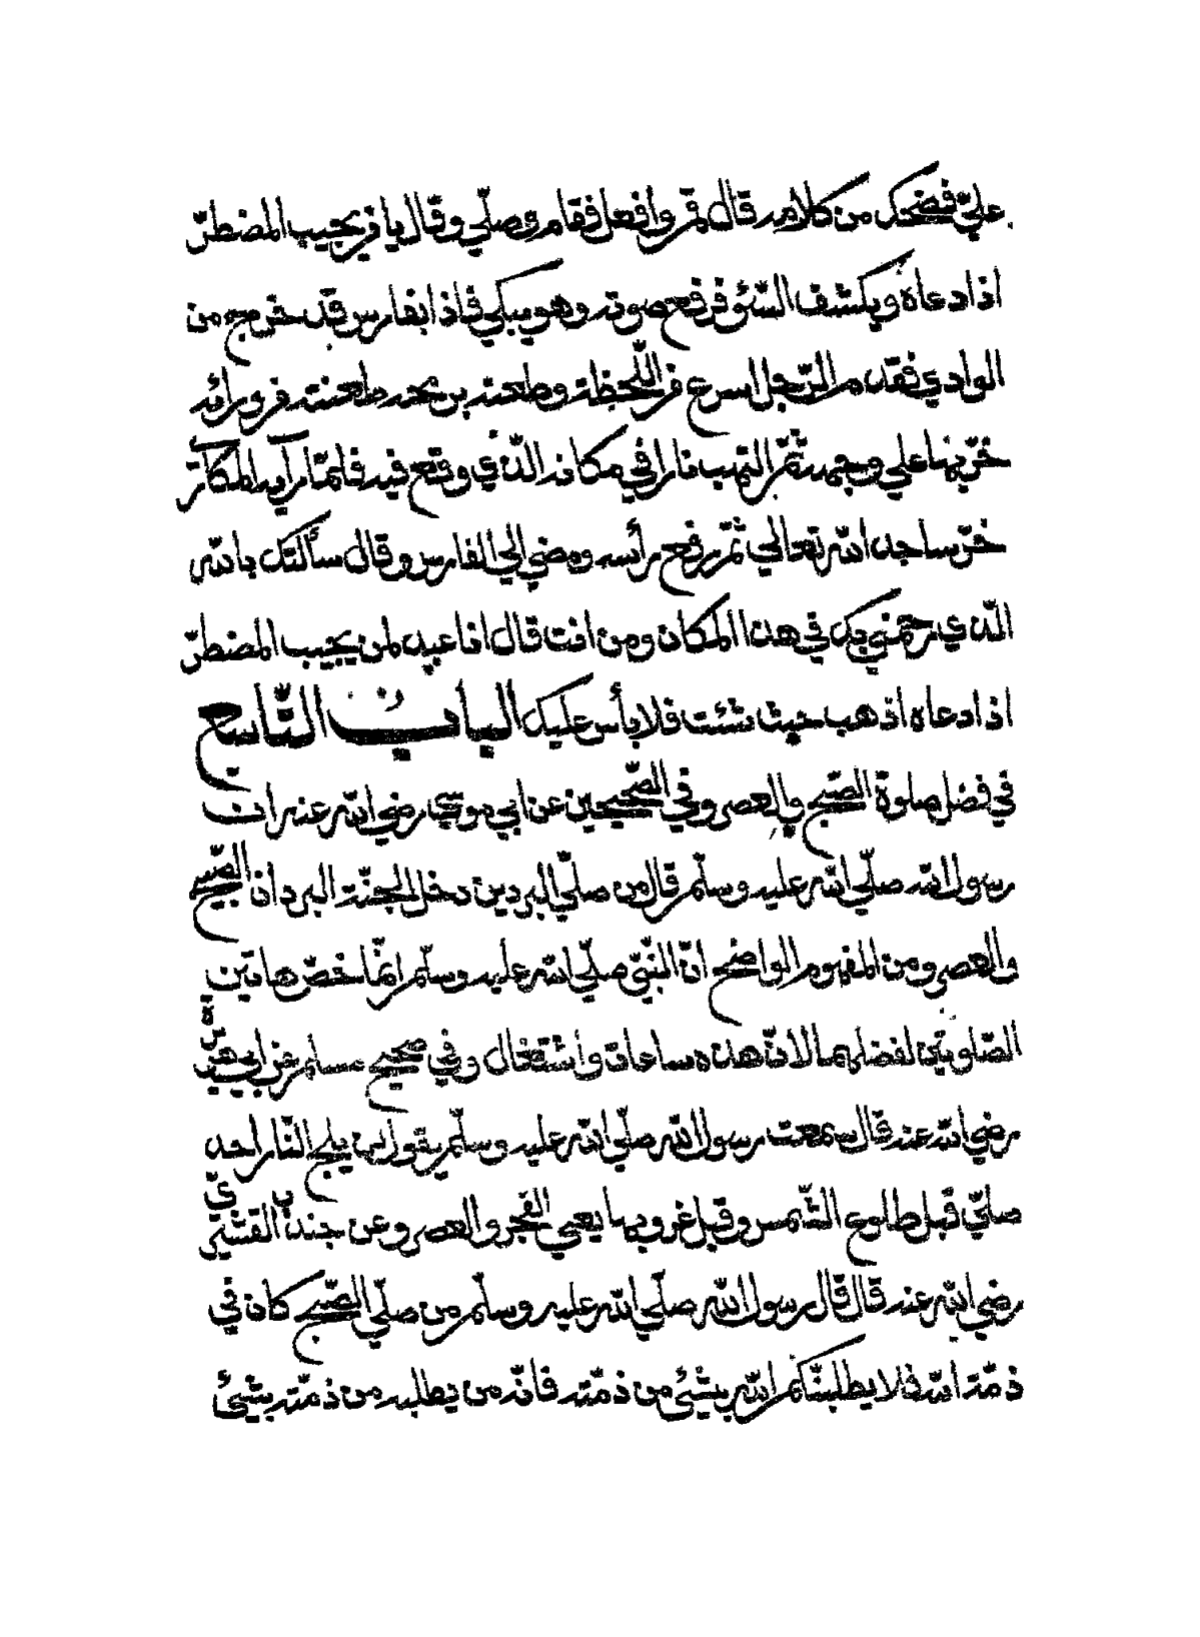 عليّ فضحك من كلامه قال قم وأفعل فقام وصلّي وقال يا من يجيب المضطرّ
اذا دعاه ويكشف السّئو فرفع صوته وهو يبكي فاذا بفارس قد خرج من
الوادي فقدم الرّجل اسرع من اللّحظة وطعنه برمحه طعنته من ورائه
خرّ بها علي وجهه ثمّ التهب نارا في مكانه الّذي وقع فيه فلمّا رآيه المكآر
خرّ ساجد الله تعالي ثمّ رفع رأسه ومضي الي الفارس وقال سألتك بالله
الّذي رحمني بك في هذا المكان ومن انت قال انا عبد لمن يجيب المضطرّ
اذا دعاه اذهب حيث شئت فلا بأس عليك الباب التّاسع
في فضل صلوة الصّبح والعصر وفي الصّحيحين عن ابي موسي رضي الله عنه ان
رسول الله صلّي الله عليه وسلّم قال من صلّي البردين دخل الجنّة البردان الصّبح
والعصر ومن المفهوم الواضح انّ النّبيّ صلّي الله عليه وسلّم انّما خصّ هاتين
الصّلوتين لفضلهما لانّ هذه ساعات واشتغال وفي صحيح مسلم عن ابي هريرة
رضي الله عنه قال سمعت رسول الله صلّي الله عليه وسلّم يقول لن يلج النّار احد
صلّي قبل طلوع الشّمس وقبل غروبها يعني الفجر والعصر وعن جندب القشيريّ
رضي الله عنه قال قال رسول الله صلّي الله عليه وسلّم من صلّي الصّبح كان في
ذمّة الله فلا يطلبنّكم الله بشئي من ذمّته فانّه من يطلبه من ذمّته بشئي